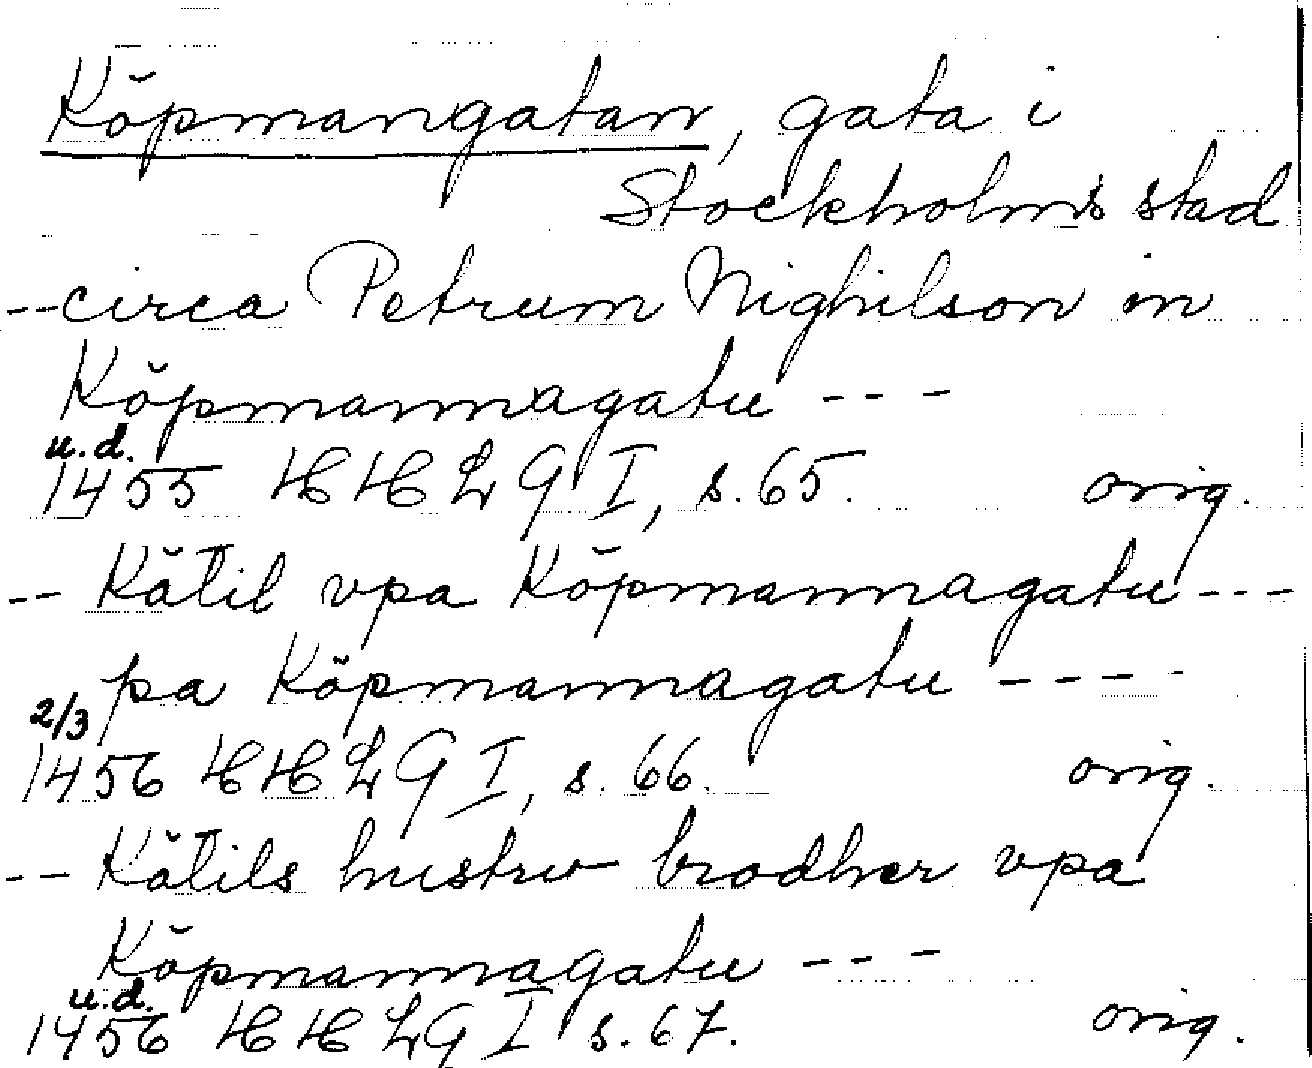 Köpmangatan, gata i
Stockholms stad
--circa Petrum Nighilson in
Köpmannagatu ---
u.d.
1455 HHLG I, s. 65. orig.
-- Kätil vpa Köpmannagatu ---
pa Köpmannagatu ----
2/3
1456 HHLG I, s. 66. orig.
-- Kätils hustrv brodher vpa
Köpmannagatu ---
u.d.
1456 HHLG I s. 67. orig.